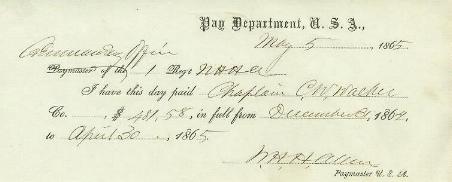 Pay Department, U. S. A.,
May 5 1865
Commanding Officer
Paymaster of the 1 Regt N H H A
I have this day paid Chaplain C. W. Walker
Co. $ 481,58, in full from December 31, 1864,
to April 30, 1865.
W. H. H. Allen
Paymaster U. S. A.